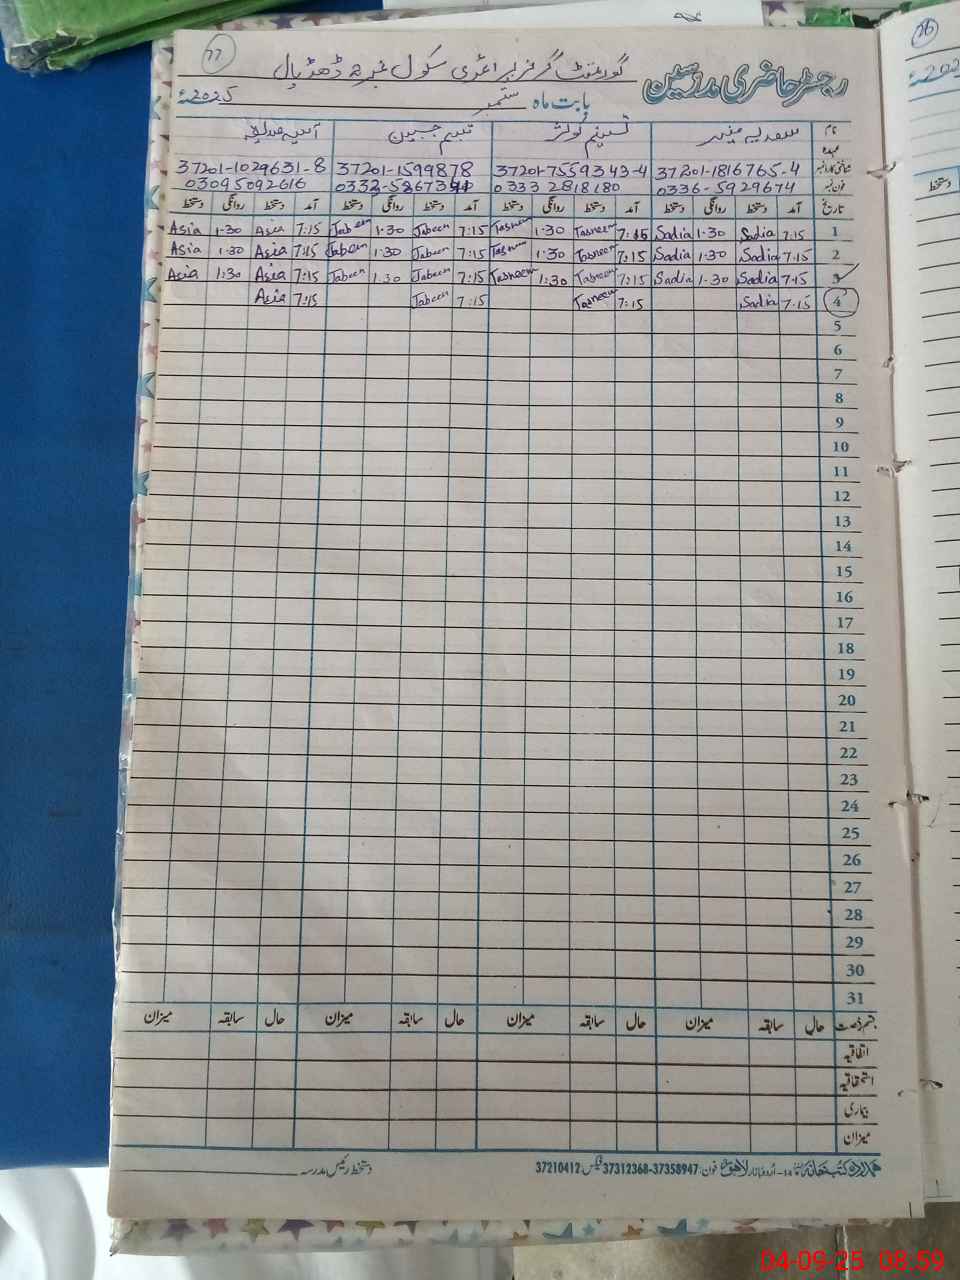 77
رجسٹر حاضری مدرسین گورنمنٹ گرلز پرائمری سکول نمبر 2 ڈھڈیال
بابت ماہ ستمبر 2025ء
نام سعدیہ منیر تسنیم کوثر تبسم جبین آسیہ صدیقہ
عہدہ
شناختی کارڈ نمبر 37201-1816765-4 37201-7559343-4 37201-1599878 37201-1029631-8
فون نمبر 0336-5929674 0333 2818180 0332-5867341 03095092616
تاریخ آمد دستخط روانگی دستخط آمد دستخط روانگی دستخط آمد دستخط روانگی دستخط آمد دستخط روانگی دستخط
1 7:15 Sadia 1:30 Sadia 7:15 Tasneem 1:30 Tasneem 7:15 Jabeen 1:30 Jabeen 7:15 Asia 1:30 Asia
2 7:15 Sadia 1:30 Sadia 7:15 Tasneem 1:30 Tasneem 7:15 Jabeen 1:30 Jabeen 7:15 Asia 1:30 Asia
3 7:15 Sadia 1:30 Sadia 7:15 Tasneem 1:30 Tasneem 7:15 Jabeen 1:30 Jabeen 7:15 Asia 1:30 Asia
4 7:15 Sadia 7:15 Tasneem 7:15 Jabeen 7:15 Asia
5
6
7
8
9
10
11
12
13
14
15
16
17
18
19
20
21
22
23
24
25
26
27
28
29
30
31
قسم رخصت حال سابقہ میزان حال سابقہ میزان حال سابقہ میزان حال سابقہ میزان
اتفاقیہ
استحقاقیہ
بیماری
میزان
ہمدرد کتب خانہ 14- اردو بازار لاہور فون: 37358947-37312368 فیکس: 37210412 دستخط رئیس مدرسہ
76
دستخط
04-09-25 08:59